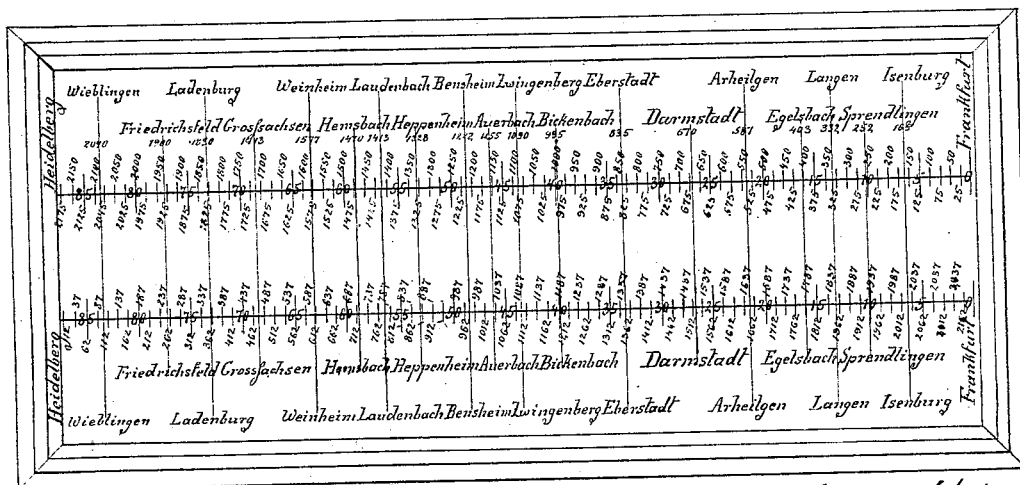 Heidelberg
Wieblingen Ladenburg Weinheim Laudenbach Bensheim Zwingenberg Eberstadt Arheilgen Langen Isenburg
Frankfurt
Friedrichsfeld Grossachsen Hemsbach Heppenheim Auerbach Bickenbach Darmstadt Egelsbach Sprendlingen
2150 2100 2050 2000 1950 1900 1850 1800 1750 1700 1650 1600 1550 1500 1450 1400 1350 1300 1250 1200 1150 1100 1050 1000 950 900 850 800 750 700 650 600 550 500 450 400 350 300 250 200 150 100 50
85 80 75 70 65 60 55 50 45 40 35 30 25 20 15 10 5 0
2175 2125 2075 2025 1975 1925 1875 1825 1775 1725 1675 1625 1575 1525 1475 1425 1375 1325 1275 1225 1175 1125 1075 1025 975 925 875 825 775 725 675 625 575 525 475 425 375 325 275 225 175 125 75 25
37 87 137 187 237 287 337 387 437 487 537 587 637 687 737 787 837 887 937 987 1037 1087 1137 1187 1237 1287 1337 1387 1437 1487 1537 1587 1637 1687 1737 1787 1837 1887 1937 1987 2037 2087 2137
85 80 75 70 65 60 55 50 45 40 35 30 25 20 15 10 5 0
12 62 112 162 212 262 312 362 412 462 512 562 612 662 712 762 812 862 912 962 1012 1062 1112 1162 1212 1262 1312 1362 1412 1462 1512 1562 1612 1662 1712 1762 1812 1862 1912 1962 2012 2062 2112 2162
Heidelberg
Friedrichsfeld Grossachsen Hemsbach Heppenheim Auerbach Bickenbach Darmstadt Egelsbach Sprendlingen
Frankfurt
Wieblingen Ladenburg Weinheim Laudenbach Bensheim Zwingenberg Eberstadt Arheilgen Langen Isenburg